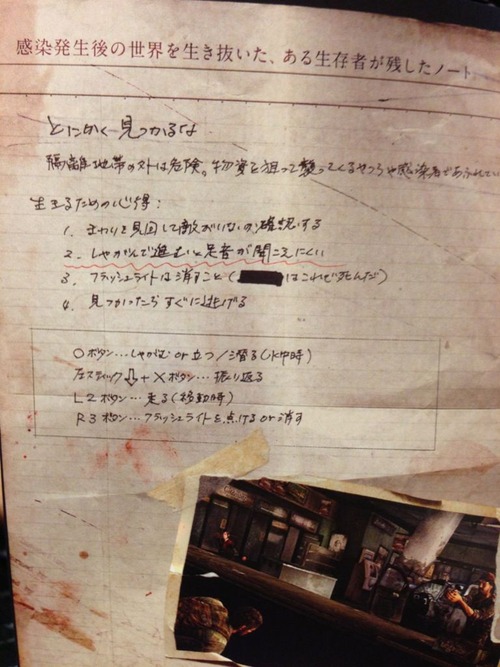 感染発生後の世界を生き抜いた、ある生存者が残したノート
とにかく見つかるな
隔離地帯の外は危険。物資を狙って襲ってくるやつらや感染者であふれてい
生きるための心得:
1. まわりを見回して敵がいないか確認する
2. しゃがんで進むと足音が聞こえにくい
3. フラッシュライトは消すこと(はこれで死んだ)
4. 見つかったらすぐに逃げる
○ボタン…しゃがむ or 立つ/潜る(水中時)
左スティック⇩+×ボタン…振り返る
L2ボタン…走る(移動時)
R3ボタン…フラッシュライトを点ける or 消す